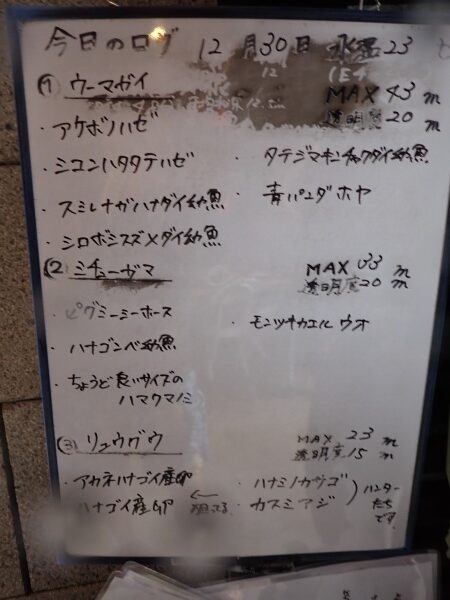 今日のログ 12月30日 水温23℃
① ウーマガイ MAX 43m
透明度20m
・アケボノハゼ
・シコンハタタテハゼ ・タテジマキンチャクダイ幼魚
・スミレナガハナダイ幼魚 ・青パンダホヤ
・シロボシスズメダイ幼魚
② ミチューガマ MAX 33m
透明度20m
・ピグミーシーホース ・モンツキカエルウオ
・ハナゴンベ幼魚
・ちょうど良いサイズの
ハマクマノミ
③ リュウグウ MAX 23m
透明度15m
・アカネハナゴイ産卵 ・ハナミノカサゴ
ハナゴイ産卵 ← 狙ってる ・カスミアジ
ハンター
たち
です